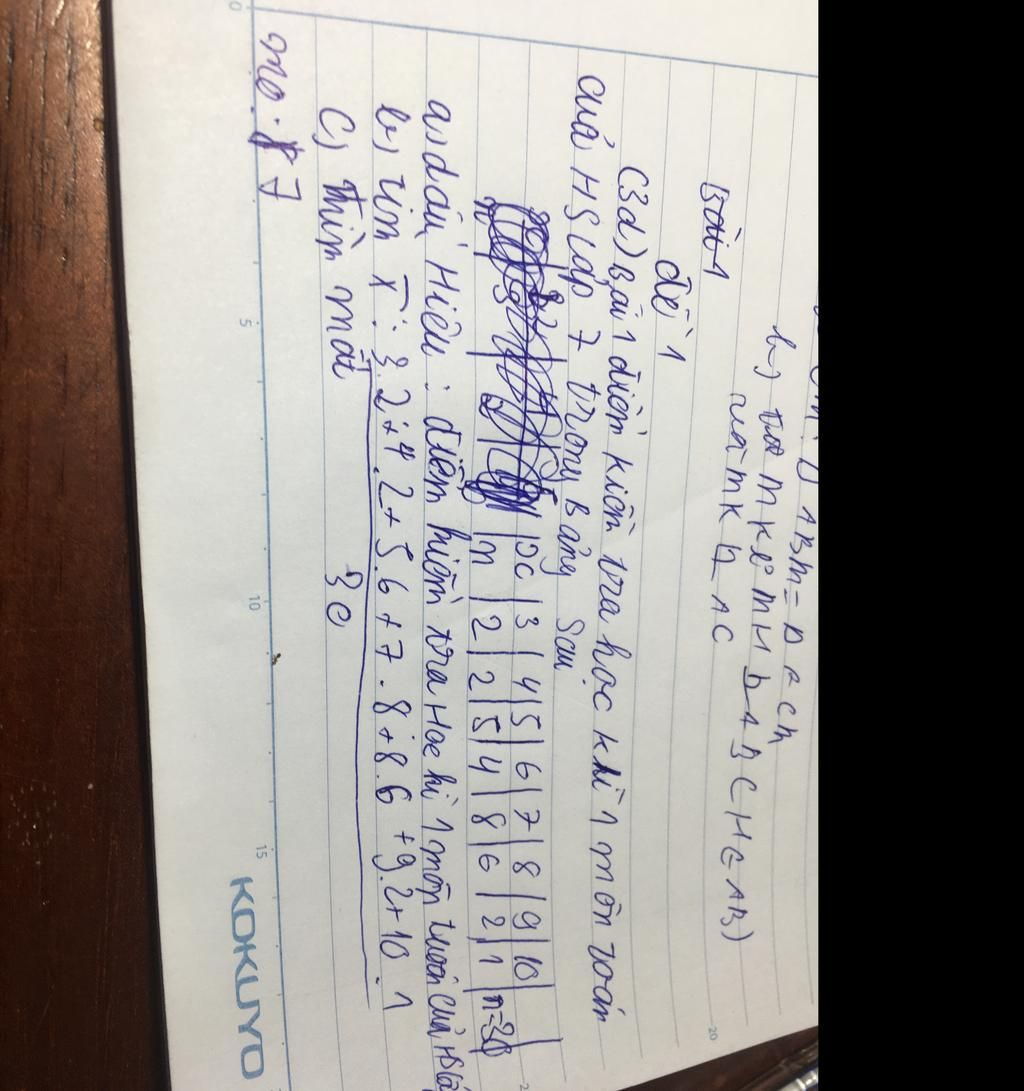 ABM = ACM
MH ⊥ AB C H ∈ AB)
và MK ⊥ AC
Bài 1
đề 1
(3đ) Bài 1 điểm kiểm tra học kì 1 môn toán
của HS lớp 7 trong bảng sau
x | 3 | 4 | 5 | 6 | 7 | 8 | 9 | 10 |
n | 2 | 2 | 5 | 4 | 8 | 6 | 2 | 1 | n=30
a) dấu Hiệu : điểm kiểm tra Học kì 1 môn toán của HS
b) tìm x̄ : 3.2+4.2+5.6+7.8+8.6+9.2+10.1
30
c) tìm mốt
mo. 8 7
0 5 10 15 20
KOKUYO